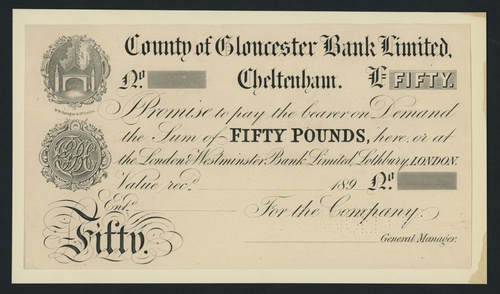 County of Gloucester Bank Limited,
No Cheltenham. £ FIFTY.
I Promise to pay the bearer on Demand
the Sum of FIFTY POUNDS, here, or at
the London & Westminster Bank Limited, Lothbury, LONDON.
Value rec.d 189 No
Ent.d For the Company.
Fifty.
General Manager.